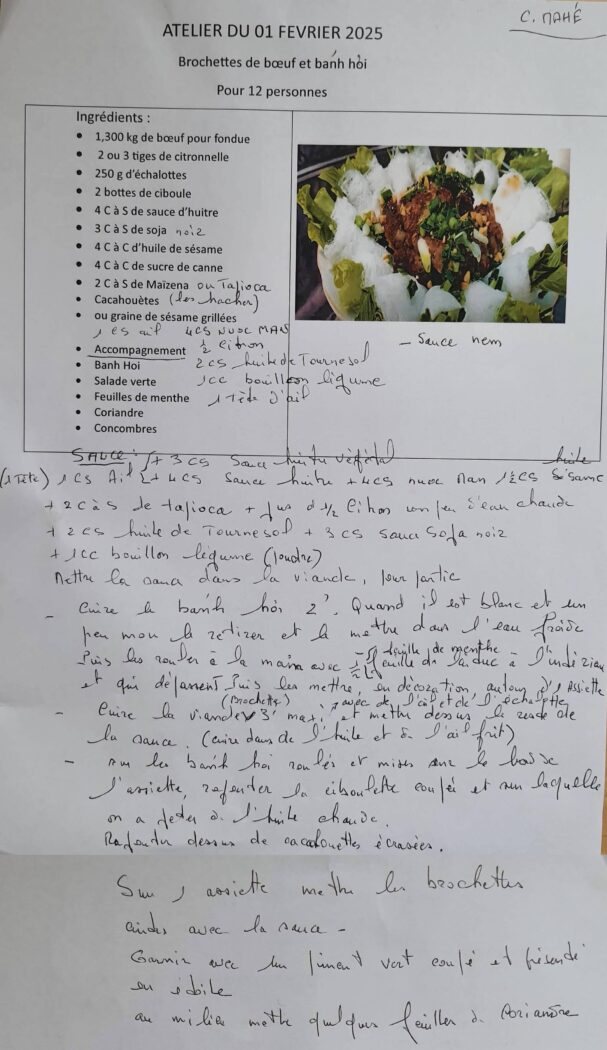 C. MAHÉ
ATELIER DU 01 FEVRIER 2025
Brochettes de bœuf et bánh hỏi
Pour 12 personnes
Ingrédients :
• 1,300 kg de bœuf pour fondue
• 2 ou 3 tiges de citronnelle
• 250 g d'échalottes
• 2 bottes de ciboule
• 4 C à S de sauce d'huitre
• 3 C à S de soja noiz
• 4 C à C d'huile de sésame
• 4 C à C de sucre de canne
• 2 C à S de Maïzena ou Tapioca
• Cacahouètes (les hacher)
• ou graine de sésame grillées
1 CS ail 4CS NUOC MAN
• Accompagnement ½ citron
• Banh Hoi 2CS huile de Tournesol
• Salade verte 1CC bouillon légume
• Feuilles de menthe 1 Tête d'ail
• Coriandre
• Concombres
- Sauce nem
SAUCE : + 3 CS Sauce huitre végétal
(1 Tête) 1 CS Ail + 4CS Sauce huitre + 4CS nuoc Man 1½CS huile Sésame
+ 2 C à S de tapioca + jus d ½ citron un peu d'eau chaude
+ 2 CS huile de Tournesol + 3 CS sauce Soja noiz
+ 1CC bouillon légume (poudre)
Mettre la sauce dans la viande, pour partie
- Cuire le bánh hỏi 2'. Quand il est blanc et un
peu mou le retirer et le mettre dans l'eau froide
Puis les rouler à la main avec ½ feuille de menthe - ½ feuille de laitue à l'intérieur
et qui dépassent. Puis les mettre, en décoration, autour d'1 Assiette
- Cuire la viande (Brochettes) 3' maxi, avec de l'ail et de l'échalotte et mettre dessus le reste de
la sauce. (cuire dans de l'huile et de l'ail frit)
- sur les bánh hỏi roulés et mises sur le bord de
l'assiette, répandre la ciboulette coupée et sur laquelle
on a jeter de l'huile chaude.
Répandre dessus de cacahouettes écrasées.
Sur 1 assiette mettre les brochettes
cuites avec la sauce -
Garnir avec un piment vert coupé et présenté
en étoile
au milieu mettre quelques feuilles de coriandre